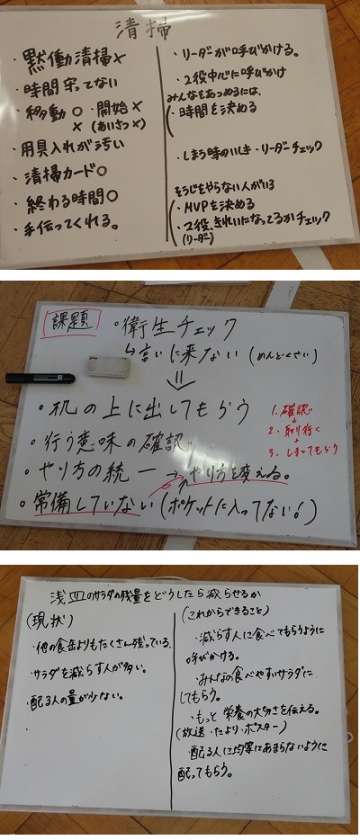 清掃
・黙働清掃×
・時間守ってない
・移動○ ・開始×
×(あいさつ×)
・用具入れが汚い
・清掃カード○
・終わる時間○
・手伝ってくれる。
・リーダーが呼びかける。
・2役中心に呼びかけ
みんなをあつめるには、
・時間を決める
・しまう時のいしき・リーダーチェック
そうじをやらない人がいる
・MVPを決める
・2役、きれいになってるかチェック
(リーダー)
課題
・衛生チェック
↳言いに来ない(めんどくさい)
⇓
・机の上に出してもらう
・行う意味の確認
・やり方の統一→やり方を変える。
・常備していない(ポケットに入ってない!)
1. 確認
2. 取り行く
3. しまってもらう
浅皿のサラダの残量をどうしたら減らせるか
(現状)
・他の食缶よりもたくさん残っている。
・サラダを減らす人が多い。
・配る人の量が少ない。
(これからできること)
・減らす人に食べてもらうように
呼びかける。
・みんなの食べやすいサラダに
してもらう。
・もっと栄養の大切さを伝える。
(放送・たより・ポスター)
・配る人に均等にあまらないように
配ってもらう。